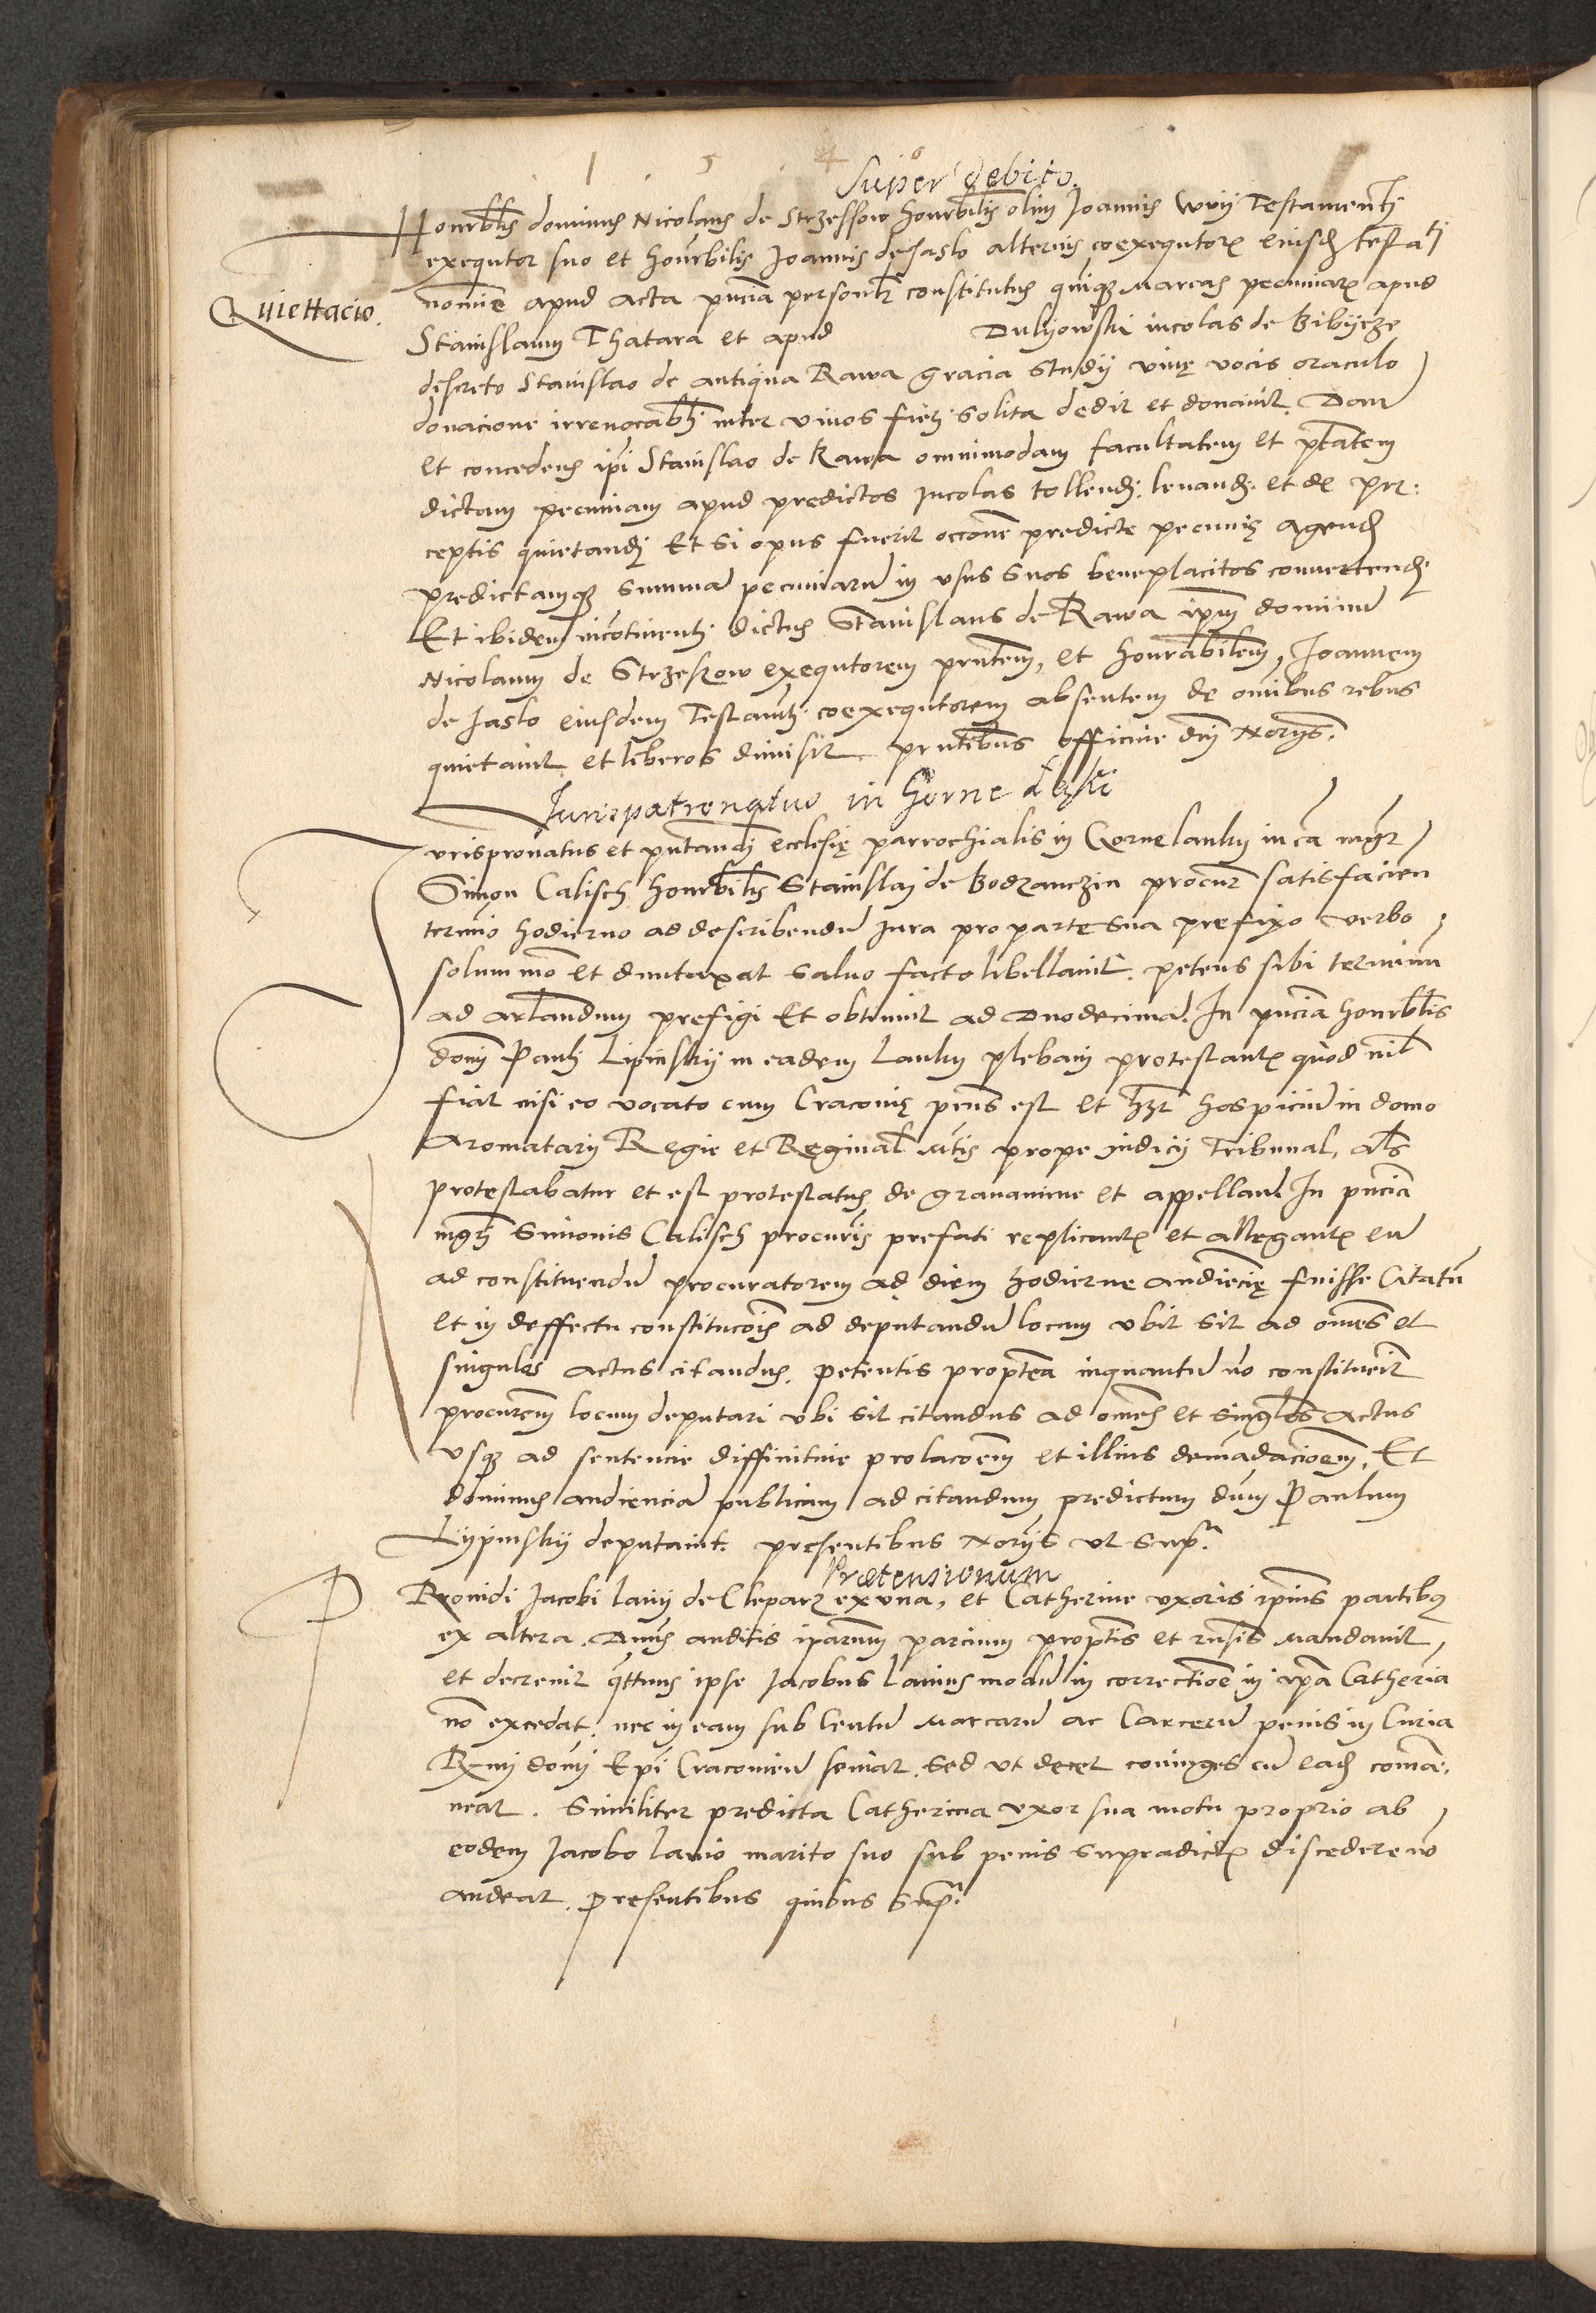 1 5 4 6
Super debito.
Honrbilis dominus Nicolaus de Strzessow honrbilis olim Joannis Testamenti
exequtor suo et honrbilis Joannis de Jaslo alterius coexequtor eiusd testati
Quiettacio.
nomie apud acta pncia personlr constitutus quinqz marcas pecuniar apud
Stanislaum Thatara et apud Dulyowski incolas de Bibycze
discreto Stanislao de antiqua Rawa gracia studij vivę vocis oraculo
donacione irrevocabili inter vivos fieri solita dedit et donavit. Dan
et concedens ipi Stanislao de Rawa omnimodam facultatem et ptatem
dictam pecuniam apud predictos incolas tollendi. levandi. et de per:
ceptis quietandi Et si opus fuerit occone predicte pecunię agend
predictamqz summa pecuniaru in usus suos beneplacitos convertendi.
Et ibidem incotinenti dictus Stanislaus de Rawa ipm dominu
Nicolaum de Strzeszow exequtorem prntem, et honrabilem, Joannem
de Jaslo eiusdem Testamti coexequtorem absentem de omibus rebus
quietavit et liberos dimisit prntibus officine dnj Norijs.
Jurispatronatus in Gorne Laski
Jurispronatus et pntandi ecclesię parrochialis in Gorne lanky in ca mgr
Simon Calisch honrbilis Stanislaj de Bodzanczin procur satisfacien
termio hodierno ad describendu jura pro parte sua prefixo verbo
solummo et duntaxat salvo facto libellavit. petens sibi terminu
ad arlandum prefigi Et obtinuit ad duodecima. In pncia honrblis
domi Pauli Lipinskij in eadem Lanky plebani protestant quod nil
fiat nisi eo vocato cum Cracovię pens est et hzt hospiciu in domo
Aromatarij Regie et Reginal Mtis prope judicij Tribunal, als
protestabatur et est protestatus de gravamine et appelland In pncia
mgri Simonis Calisch procuris prefati replicant et allegant eu
ad constituendu procuratorem ad diem hodierne audiecię fuisse citatu
et in deffectu constitucois ad deputandu locum ubi sit ad omes et
singulos actus citandus. petentis proptea inquantu no constituerit
procurem locum deputari ubi sit citandus ad omes et singlos actus
usqz ad sentencie diffinitive prolacoem et illius demadacioem. Et
dominus audiencia publicam ad citandum predictum dnum Paulum
Lypinskij deputavit. presentibus Norijs ut supra.
Prætensionum
Providi Jacobi lanij de Cleparz ex una, et Catherine uxoris ipius partibus
ex altera. Dnus auditis iparum parcium propotis et rnsis mandavit
et decrevit qttnus ipse Jacobus Lanius modu in correctioe in ipa Catheria
no excedat. nec in eam sub Centu marcaru ac Carceru penis in Curia
Rmi domi Epi Cracovien seviat. sed ut decet coniuges cu ead coma:
neat. Similiter predicta Catherina uxor sua motu proprio ab
eodem Jacobo lanio marito suo sub penis supradict discedere no
audeat. presentibus quibus supra.